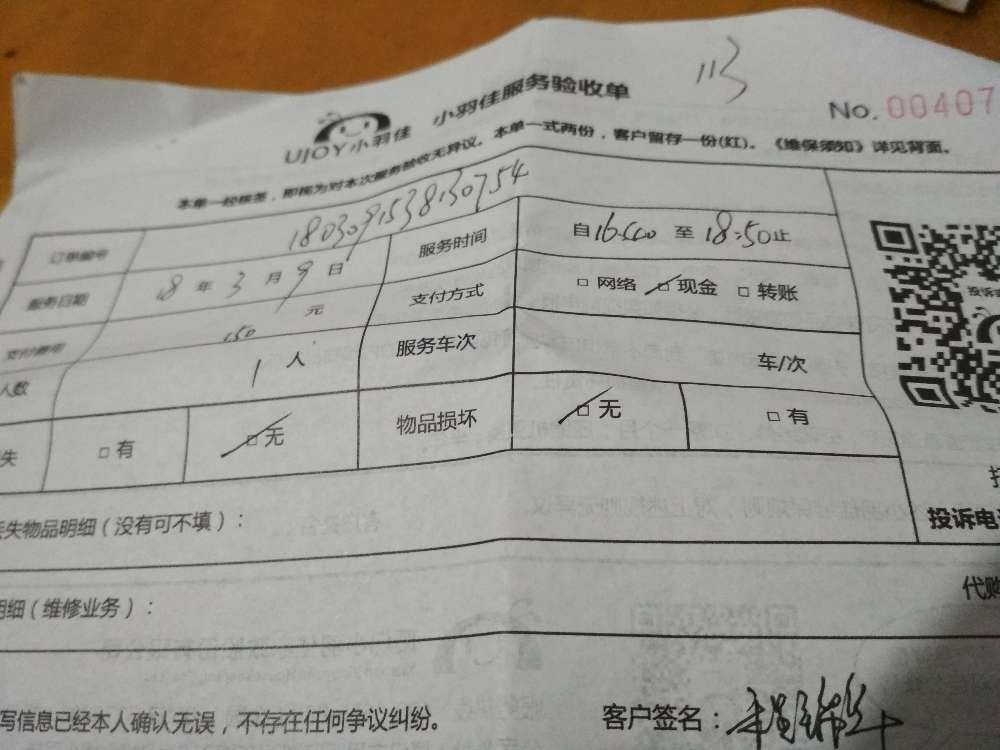 113
小羽佳服务验收单
No. 00407
UJOY小羽佳
本单一经核签，即视为对本次服务验收无异议。本单一式两份，客户留存一份(红)。《维保须知》详见背面。
订单编号 1803091538130754
服务日期 18 年 3 月 9 日 服务时间 自16:00 至 18:50止
支付费用 150 元 支付方式 □ 网络 □ 现金 □ 转账
人数 1 人 服务车次 车/次
失 □ 有 □ 无 物品损坏 □ 无 □ 有
失物品明细（没有可不填）：
投诉电
明细（维修业务）：
代购
写信息已经本人确认无误，不存在任何争议纠纷。
客户签名：